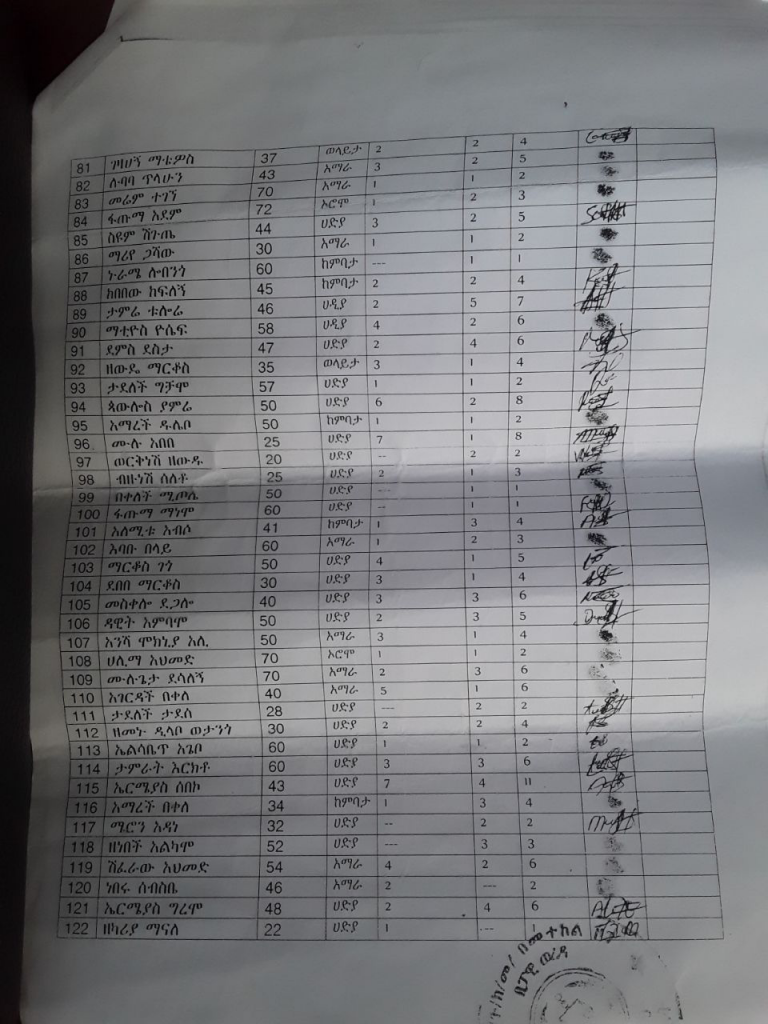 81 ገዛኸኝ ማቴዎስ 37 ወላይታ 2 2 4
82 ሉባባ ጥላሁን 43 አማራ 3 2 5
83 መሬም ተገኝ 70 አማራ 1 1 2
84 ፋጡማ አደም 72 ኦሮሞ 1 2 3
85 ስዩም ሽጉጤ 44 ሀድያ 3 2 5
86 ማሪየ ጋሻው 30 አማራ 1 1 2
87 ኑራሜ ሎብንጎ 60 ከምባታ --- 1 1
88 ከበበው ከፍለኝ 45 ከምባታ 2 2 4
89 ታምሬ ቱሎሬ 46 ሀዲያ 2 5 7
90 ማቲዮስ ዮሴፍ 58 ሀዲያ 4 2 6
91 ደምስ ደስታ 47 ሀድያ 2 4 6
92 ዘውዴ ማርቆስ 35 ወላይታ 3 1 4
93 ታደለች ግቻሞ 57 ሀድያ 1 1 2
94 ጳውሎስ ያምሬ 50 ሀድያ 6 2 8
95 አማረች ዱሌቦ 50 ከምባታ 1 1 2
96 ሙሉ አበበ 25 ሀድያ 7 1 8
97 ወርቅነሽ ዘውዱ 20 ሀድያ -- 2 2
98 ብዙነሽ ሰለቶ 25 ሀድያ 2 1 3
99 በቀለች ሚጦሴ 50 ሀድያ --- 1 1
100 ፋጡማ ማነሞ 60 ሀድያ -- 1 1
101 አለሚቱ አብሶ 41 ከምባታ 1 3 4
102 አባቡ በላይ 60 አማራ 1 2 3
103 ማርቆስ ገጎ 50 ሀድያ 4 1 5
104 ደበበ ማርቆስ 30 ሀድያ 3 1 4
105 መስቀሎ ደጋሎ 40 ሀድያ 3 3 6
106 ዳዊት አምባሞ 50 ሀድያ 2 3 5
107 አንሻ ሞክኒያ አሊ 50 አማራ 3 1 4
108 ሀሊማ አህመድ 70 ኦሮሞ 1 1 2
109 ሙሉጌታ ደሳለኝ 70 አማራ 2 3 6
110 አገርዳች በቀለ 40 አማራ 5 1 6
111 ታደለች ታደሰ 28 ሀድያ --- 2 2
112 ዘመኑ ዲሳቦ ወታንጎ 30 ሀድያ 2 2 4
113 ኤልሳቤጥ አጌቦ 60 ሀድያ 1 1 2
114 ታምራት እርከቶ 60 ሀድያ 3 3 6
115 ኤርሚያስ ሰበኮ 43 ሀድያ 7 4 11
116 አማረች በቀለ 34 ከምባታ 1 3 4
117 ሜሮን አዳነ 32 ሀድያ -- 2 2
118 ዘነበች አልካሞ 52 ሀድያ --- 3 3
119 ሽፈራው አህመድ 54 አማራ 4 2 6
120 ነበሩ ሰብስቤ 46 አማራ 2 --- 2
121 ኤርሚያስ ግረሞ 48 ሀድያ 2 4 6
122 ዘካሪያ ማናለ 22 ሀድያ 1 ---